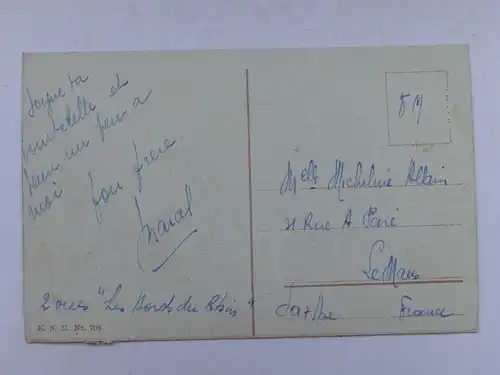 Soigne ta
et
un peu a
moi ton frere
Marcel
2 oies "Les Bords du Rhin"
K. S. M. Nr. 708
FM
Melle Micheline Allain
21 Rue A Paré
Le Mans
Sarthe France